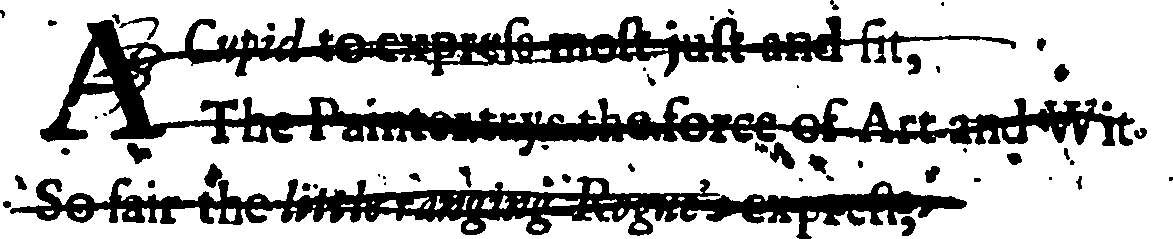 A Cupid to expreſs moſt juſt and fit,
The Painter trys the force of Art and Wit.
So fair the little ranging Rogue's expreſt,